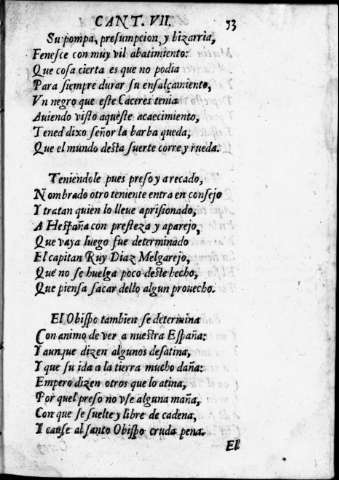 CANT. VII. 53
Su pompa, presumpcion, y bizarria,
Fenesce con muy vil abatimiento:
Que cosa cierta es que no podia
Para siempre durar su ensalçamiento,
Vn negro que este Caceres tenia
Auiendo visto aqueste acaecimiento,
Tened dixo señor la barba queda,
Que el mundo desta suerte corre y rueda.
Teniendole pues preso y arecado,
Nombrado otro teniente entra en consejo
Y tratan quien lo lleue aprisionado,
A Hespaña con presteza y aparejo,
Que vaya luego fue determinado
El capitan Ruy Diaz Melgarejo,
Que no se huelga poco deste hecho,
Que piensa sacar dello algun prouecho.
El Obispo tambien se determina
Con animo de ver a nuestra España:
Y aunque dizen algunos desatina,
Y que su ida a la tierra mucho daña:
Empero dizen otros que lo atina,
Por quel preso no vse alguna maña,
Con que se suelte y libre de cadena,
Y cause al santo Obispo cruda pena.
El